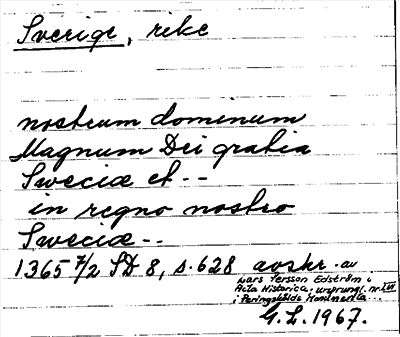 Sverige, rike
nostrum dominum
Magnum Dei gratia
Sweciæ et --
in regno nostro
Sweciæ --
1365 7/2 SD 8, s. 628 avskr. av
Lars Persson Edström i
Acta Historica, ursprungl. nr
i Peringskiölds Monumenta...
G.L. 1967.